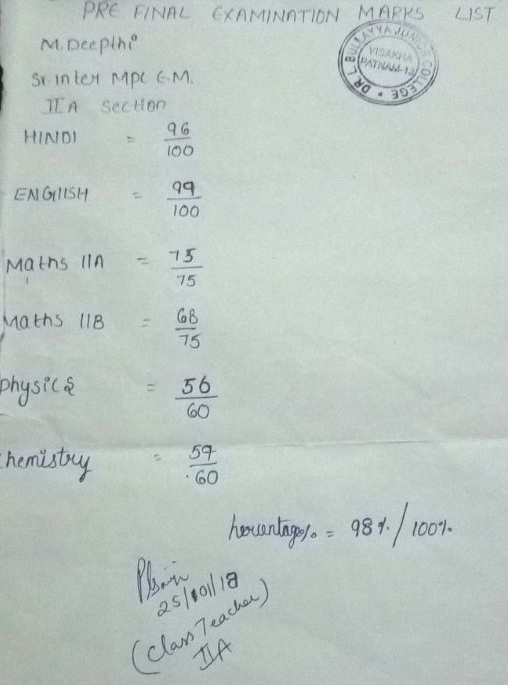 PRE FINAL EXAMINATION MARKS LIST
M. Deepthi
Sr. inter MPC E.M.
II A Section
DR. L. BULLAYYA JUNIOR COLLEGE
VISAKHA
PATNAM-13
HINDI = 96/100
ENGlISH = 99/100
Maths IIA = 75/75
Maths IIB = 68/75
Physics = 56/60
Chemistry = 59/60
percentage% = 98%/100%
25/01/18
(Class Teacher)
IIA